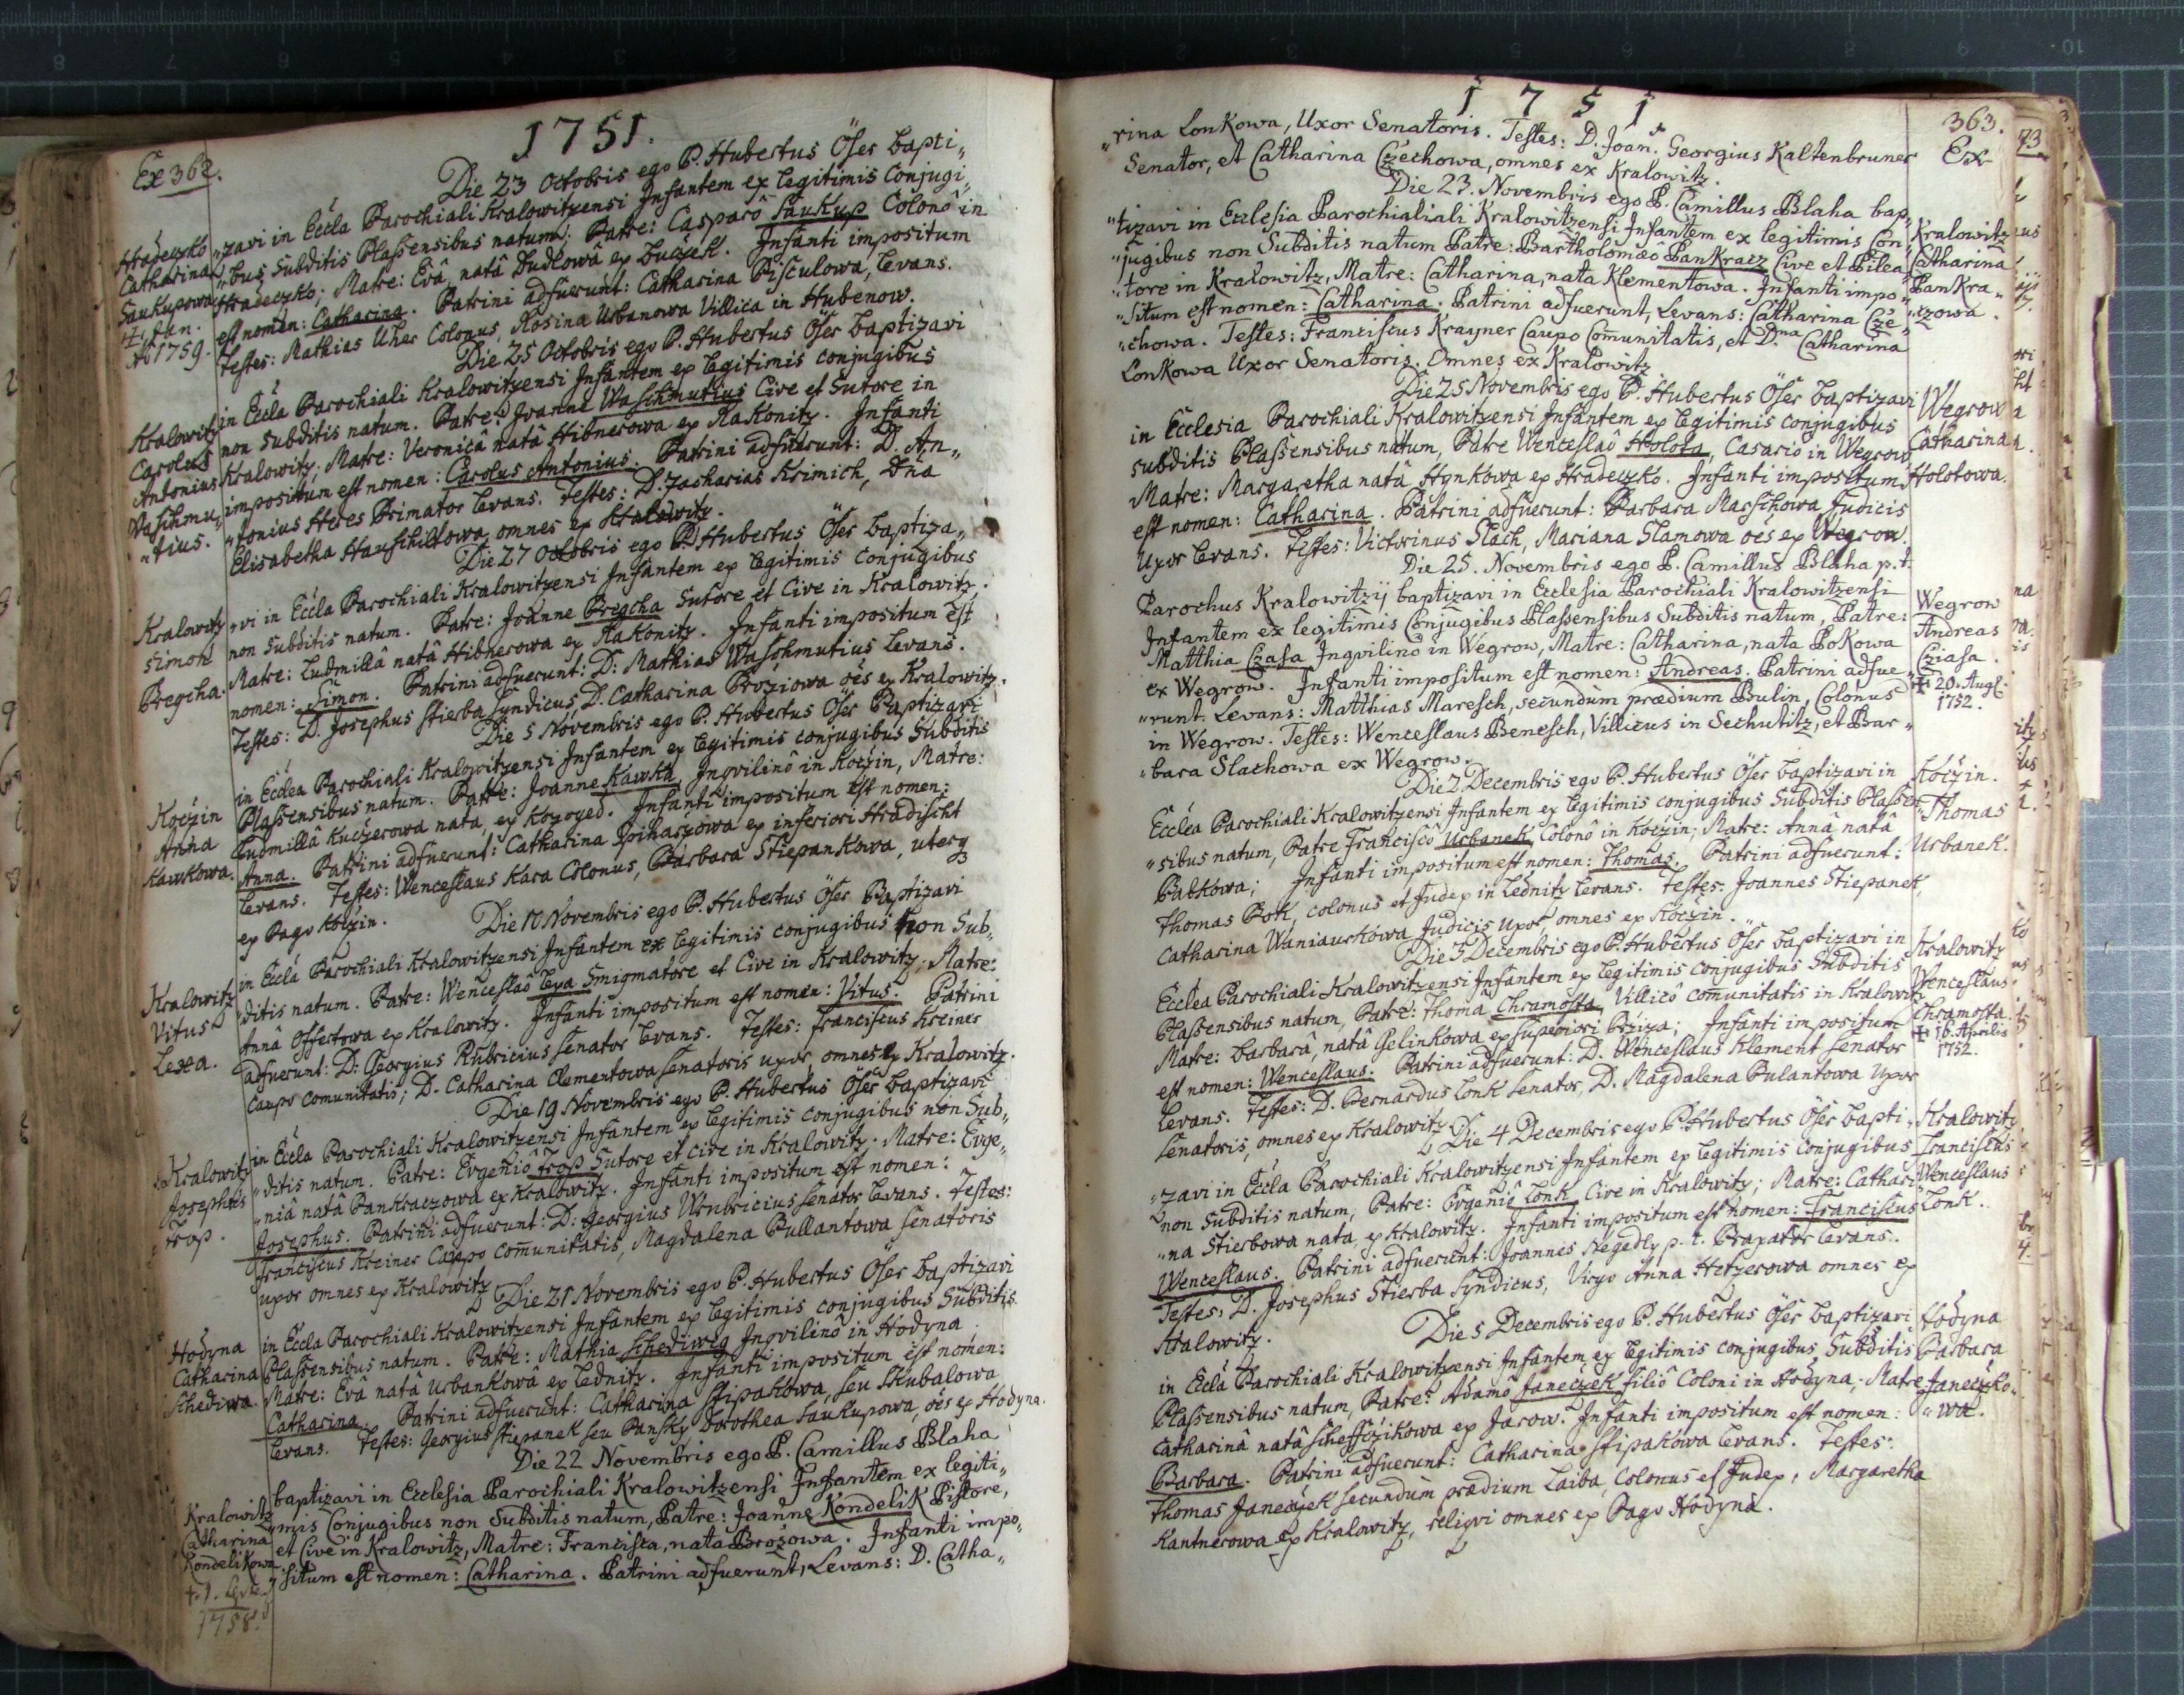 1751.
Ex 362.
Die 23 Octobris ego P. Hubertus Öser bapti„
„zavi in Eccla Parochiali Kralowitzensi Infantem ex legitimis Conjugi„
„bus Subditis Plassensibus natum: Patre: Casparô Saukup Colonô in
Hradeczko; Matre: Evâ, natâ Budlowâ ex Buczek. Infanti impositum
est nomen: Catharina. Patrini adfuerunt: Catharina Pisculowa, levans.
Testes: Mathias Uher Colonus, Rosina Urbanowa Villica in Hubenow.
Hradeczko
Catharina
Saukupowa
Jan.
Ao 1759.
Die 25 Octobris ego P. Hubertus Öser baptizavi
in Eccla Parochiali Kralowitzensi Infantem ex legitimis conjugibus
non Subditis natum. Patre: Joanne Waschmutius Cive et Sutore in
Kralowitz; Matre: Veronica natâ Hibnerowa ex Rakonitz. Infanti
impositum est nomen: Carolus Antonius. Patrini adfuerunt: D. An„
„tonius Heres Primator levans. Testes: D. Zacharias Krimich, Dna
Elisabetha Hauschildlowa omnes ex Kralowitz.
Kralowitz
Carolus
Antonius
Waschmu„
„tius.
Die 27 Octobris ego P. Hubertus Öser baptiza„
„vi in Eccla Parochiali Kralowitzensi Infantem ex legitimis conjugibus
non Subditis natum. Patre: Joanne Bregcha Sutore et Cive in Kralowitz.
Matre: Ludmillâ natâ Hibnerowa ex Rakonitz. Infanti impositum est
nomen: Simon. Patrini adfuerunt: D: Mathias Waschmutius levans.
Testes: D. Josephus Stierba Syndicus, D. Catharina Broziowa oes ex Kralowitz.
Kralowitz
Simon
Bregcha.
Die 5 Novembris ego P. Hubertus Öser Baptizavi
in Ecclea Parochiali Kralowitzensi Infantem ex legitimis conjugibus Subditis
Plassensibus natum. Patre: Joanne Kawka, Inqvilinô in Koczin, Matre:
Ludmillâ Kuczerowa nata, ex Kozoyed. Infanti impositum est nomen:
Anna. Patrini adfuerunt: Catharina ex inferiori Hradischt
levans. Testes: Wenceslaus Kara Colonus, Barbara Stiepankowa, uterq
ex Pago Koczin.
Koczin
Anna
Kawkowa.
Die 10 Novembris ego P. Hubertus Öser Baptizavi
in Eccla Parochiali Kralowitzensi Infantem ex legitimis conjugibus non Sub„
„ditis natum. Patre: Wenceslaô Lexa Smigmatore et Cive in Kralowitz; Matre:
Annâ Offertowa ex Kralowitz. Infanti impositum est nomen: Vitus. Patrini
adfuerunt: D: Georgius Rubricius senator levans. Testes: Franciscus Kreiner
Caupo comunitatis; D. Catharina Clementowa senatoris uxor, omnes ex Kralowitz.
Kralowitz
Vitus
Lexa.
Die 19 Novembris ego P. Hubertus Öser baptizavi
in Eccla Parochiali Kralowitzensi Infantem ex legitimis conjugibus non Sub„
„ditis natum. Patre: Evgeniô Trop Sutore et cive in Kralowitz. Matre: Evge„
„niâ natâ Pankraczowa ex Kralowitz. Infanti impositum est nomen:
Josephus. Patrini adfuerunt: D: Georgius senator levans. Testes:
Franciscus Kreiner Caupo comunitatis, Magdalena Pullantowa senatoris
uxor omnes ex Kralowitz
Kralowitz
Josephus
Trop.
Die 21 Novembris ego P. Hubertus Öser baptizavi
in Eccla Parochiali Kralowitzensi Infantem ex legitimis conjugibus Subditis
Plassensibus natum. Patre: Mathia Schediweg Inqvilinô in Hodyna.
Matre: Evâ natâ Urbankowâ ex Lednitz. Infanti impositum est nomen:
Catharina. Patrini adfuerunt: Catharina Stipakowa, seu Skubalowa
levans. Testes: Georgius Stiepanek seu Pansky Dorothea Saukupowa, oes ex Hodyna.
Hodyna
Catharina
Schediwa.
Die 22 Novembris ego P. Camillus Blaha
baptizavi in Ecclesia Parochiali Kralowitzensi Infantem ex legiti„
„mis Conjugibus non Subditis natum, Patre: Joanne Kondelik Pistore,
et Cive in Kralowitz, Matre: Francisca, nata Brožowa. Infanti impo„
„situm est nomen: Catharina. Patrini adfuerunt, Levans: D. Catha„
Kralowitz
Catharina
Kondelikowa
1758.
1751
363.
Ex
„rina Lonkowa, Uxor Senatoris. Testes: D. Joan. Georgius Kaltenbruner
Senator, et Catharina Czechowa, omnes ex Kralowitz.
Die 23. Novembris ego P. Camillus Blaha bap„
„tizavi in Ecclesia Parochialiali Kralowitzensi Infantem ex legitimis Con„
„jugibus non Subditis natum Patre: Bartholomæô Pankracz Cive et Pilea„
„tore in Kralowitz, Matre: Catharina, nata Klementowa. Infanti impo„
„situm est nomen: Catharina. Patrini adfuerunt, Levans: Catharina Cze„
„chowa. Testes: Franciscus Krayner Caupo Comunitatis, et Dna Catharina
Lonkowa Uxor Senatoris. Omnes ex Kralowitz
Kralowitz
Catharina
Pankra„
„czowa.
Die 25 Novembris ego P. Hubertus Öser baptizavi
in Ecclesia Parochiali Kralowitzensi Infantem ex legitimis conjugibus
subditis Plassensibus natum, Patre Wenceslaô Holota, Casario in Wegrow
Matre: Margaretha natâ Hynkowa ex Hradeczko. Infanti impositum
est nomen: Catharina. Patrini adfuerunt: Barbara Marschowa Judicis
Uxor levans. Testes: Victorinus Slach, Mariana Slamowa oes ex Wegrow.
Wegrow
Catharina
Holotowa.
Die 25. Novembris ego P. Camillus Blaha p.t.
Parochus Kralowitzij baptizavi in Ecclesia Parochiali Kralowitzensi
Infantem ex legitimis Conjugibus Plassensibus Subditis natum, Patre:
Matthia Czasa Inqvilinô in Wegrow, Matre: Catharina, nata Pokowa
ex Wegrow. Infanti impositum est nomen: Andreas. Patrini adfue„
„runt. Levans: Matthias Maresch, secundum prædium Bulin, Colonus
in Wegrow. Testes: Wenceslaus Benesch, Villicus in Sechutitz, et Bar„
„bara Slachowa ex Wegrow.
Wegrow
Andreas
Cziasa.
+ 20. Aug:
1752.
Die 2 Decembris ego P. Hubertus Öser baptizavi in
Ecclea Parochiali Kralowitzensi Infantem ex legitimis conjugibus Subditis Plassen„
„sibus natum, Patre Franciscô Urbanek Colonô in Koczin; Matre: Annâ natâ
Infanti impositum est nomen: Thomas. Patrini adfuerunt:
Thomas Pok, colonus et Judex in Lednitz levans. Testes: Joannes Stiepanek,
Catharina Waniaurkowa Judicis Uxor omnes ex Koczin.
Koczin.
Thomas
Urbanek.
Die 3 Decembris ego P. Hubertus Öser baptizavi in
Ecclea Parochiali Kralowitzensi Infantem ex legitimis conjugibus Subditis
Plassensibus natum, Patre: Thoma Chramosta, Villicô comunitatis in Kralowitz
Matre: Barbarâ, natâ Gelinkowa ex superiori Brziza; Infanti impositum
est nomen: Wenceslaus. Patrini adfuerunt: D. Wenceslaus Klement Senator
levans. Testes: D. Bernardus Lonk Senator, D. Magdalena Pulantowa Uxor
Senatoris, omnes ex Kralowitz
Kralowitz
Wenceslaus
Chramosta.
+ 16. Aprilis
1752.
Die 4 Decembris ego P. Hubertus Öser bapti„
„zavi in Eccla Parochiali Kralowitzensi Infantem ex legitimis conjugibus
non Subditis natum, Patre: Evgeniô Lonk Cive in Kralowitz; Matre: Cathari„
„na Stierbowa nata, ex Kralowitz. Infanti impositum est nomen: Franciscus
Wenceslaus. Patrini adfuerunt: Joannes Negedly p. t. Braxator levans.
Testes: D. Josephus Stierba Syndicus, Virgo Anna Hetzerowa omnes ex
Kralowitz.
Kralowitz
Franciscus
Wenceslaus
Lonk.
Die 5 Decembris ego P. Hubertus Öser baptizavi
in Eccla Parochiali Kralowitzensi Infantem ex legitimis conjugibus Subditis
Plassensibus natum, Patre: Adamo Janeczek filiô Coloni in Hodyna; Matre
Catharinâ natâ ex Jarow. Infanti impositum est nomen:
Barbara. Patrini adfuerunt: Catharina Stipakowa levans. Testes:
Thomas Janeczek secundum prædium Laiba, Colonus et Judex, Margaretha
Kantnerowa ex Kralowitz, reliqvi omnes ex Pago Hodyna.
Hodyna
Barbara
Janeczko„
„wa.